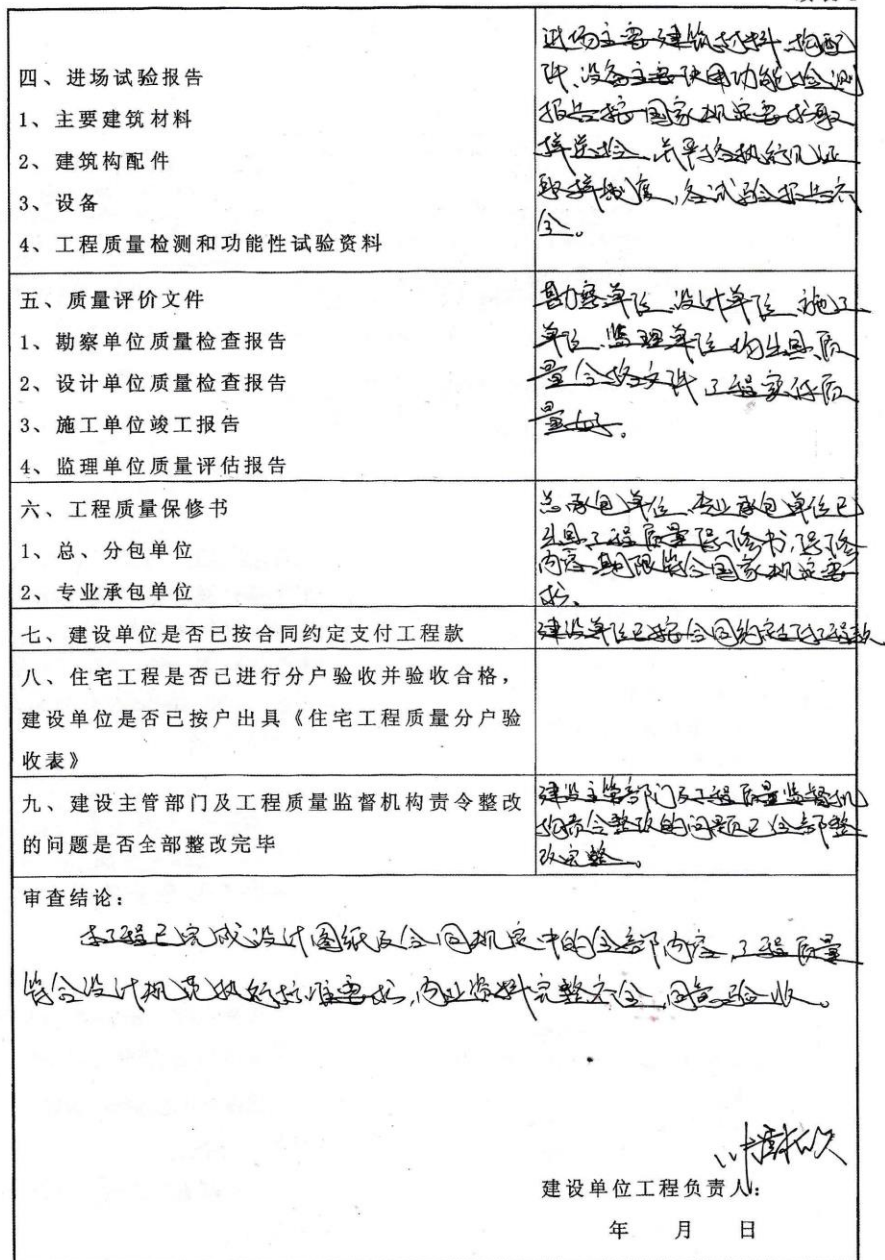 四、进场试验报告
1、主要建筑材料
2、建筑构配件
3、设备
4、工程质量检测和功能性试验资料
进场主要建筑材料、构配
件、设备主要使用功能检测
报告按国家规定要求取
样送检，并严格执行见证
取样制度，各试验报告齐
全。
五、质量评价文件
1、勘察单位质量检查报告
2、设计单位质量检查报告
3、施工单位竣工报告
4、监理单位质量评估报告
勘察单位、设计单位、施工
单位、监理单位均出具质
量合格文件，工程实体质
量好。
六、工程质量保修书
1、总、分包单位
2、专业承包单位
总承包单位、专业承包单位已
出具工程质量保修书，保修
内容、期限符合国家规定要
求。
七、建设单位是否已按合同约定支付工程款
建设单位已按合同约定支付工程款
八、住宅工程是否已进行分户验收并验收合格，
建设单位是否已按户出具《住宅工程质量分户验
收表》
九、建设主管部门及工程质量监督机构责令整改
的问题是否全部整改完毕
建设主管部门及工程质量监督机
构责令整改的问题已全部整
改完整。
审查结论：
本工程已完成设计图纸及合同规定中的全部内容，工程质量
符合设计规范执行标准要求，内业资料完整齐全，同意验收。
建设单位工程负责人：
年 月 日